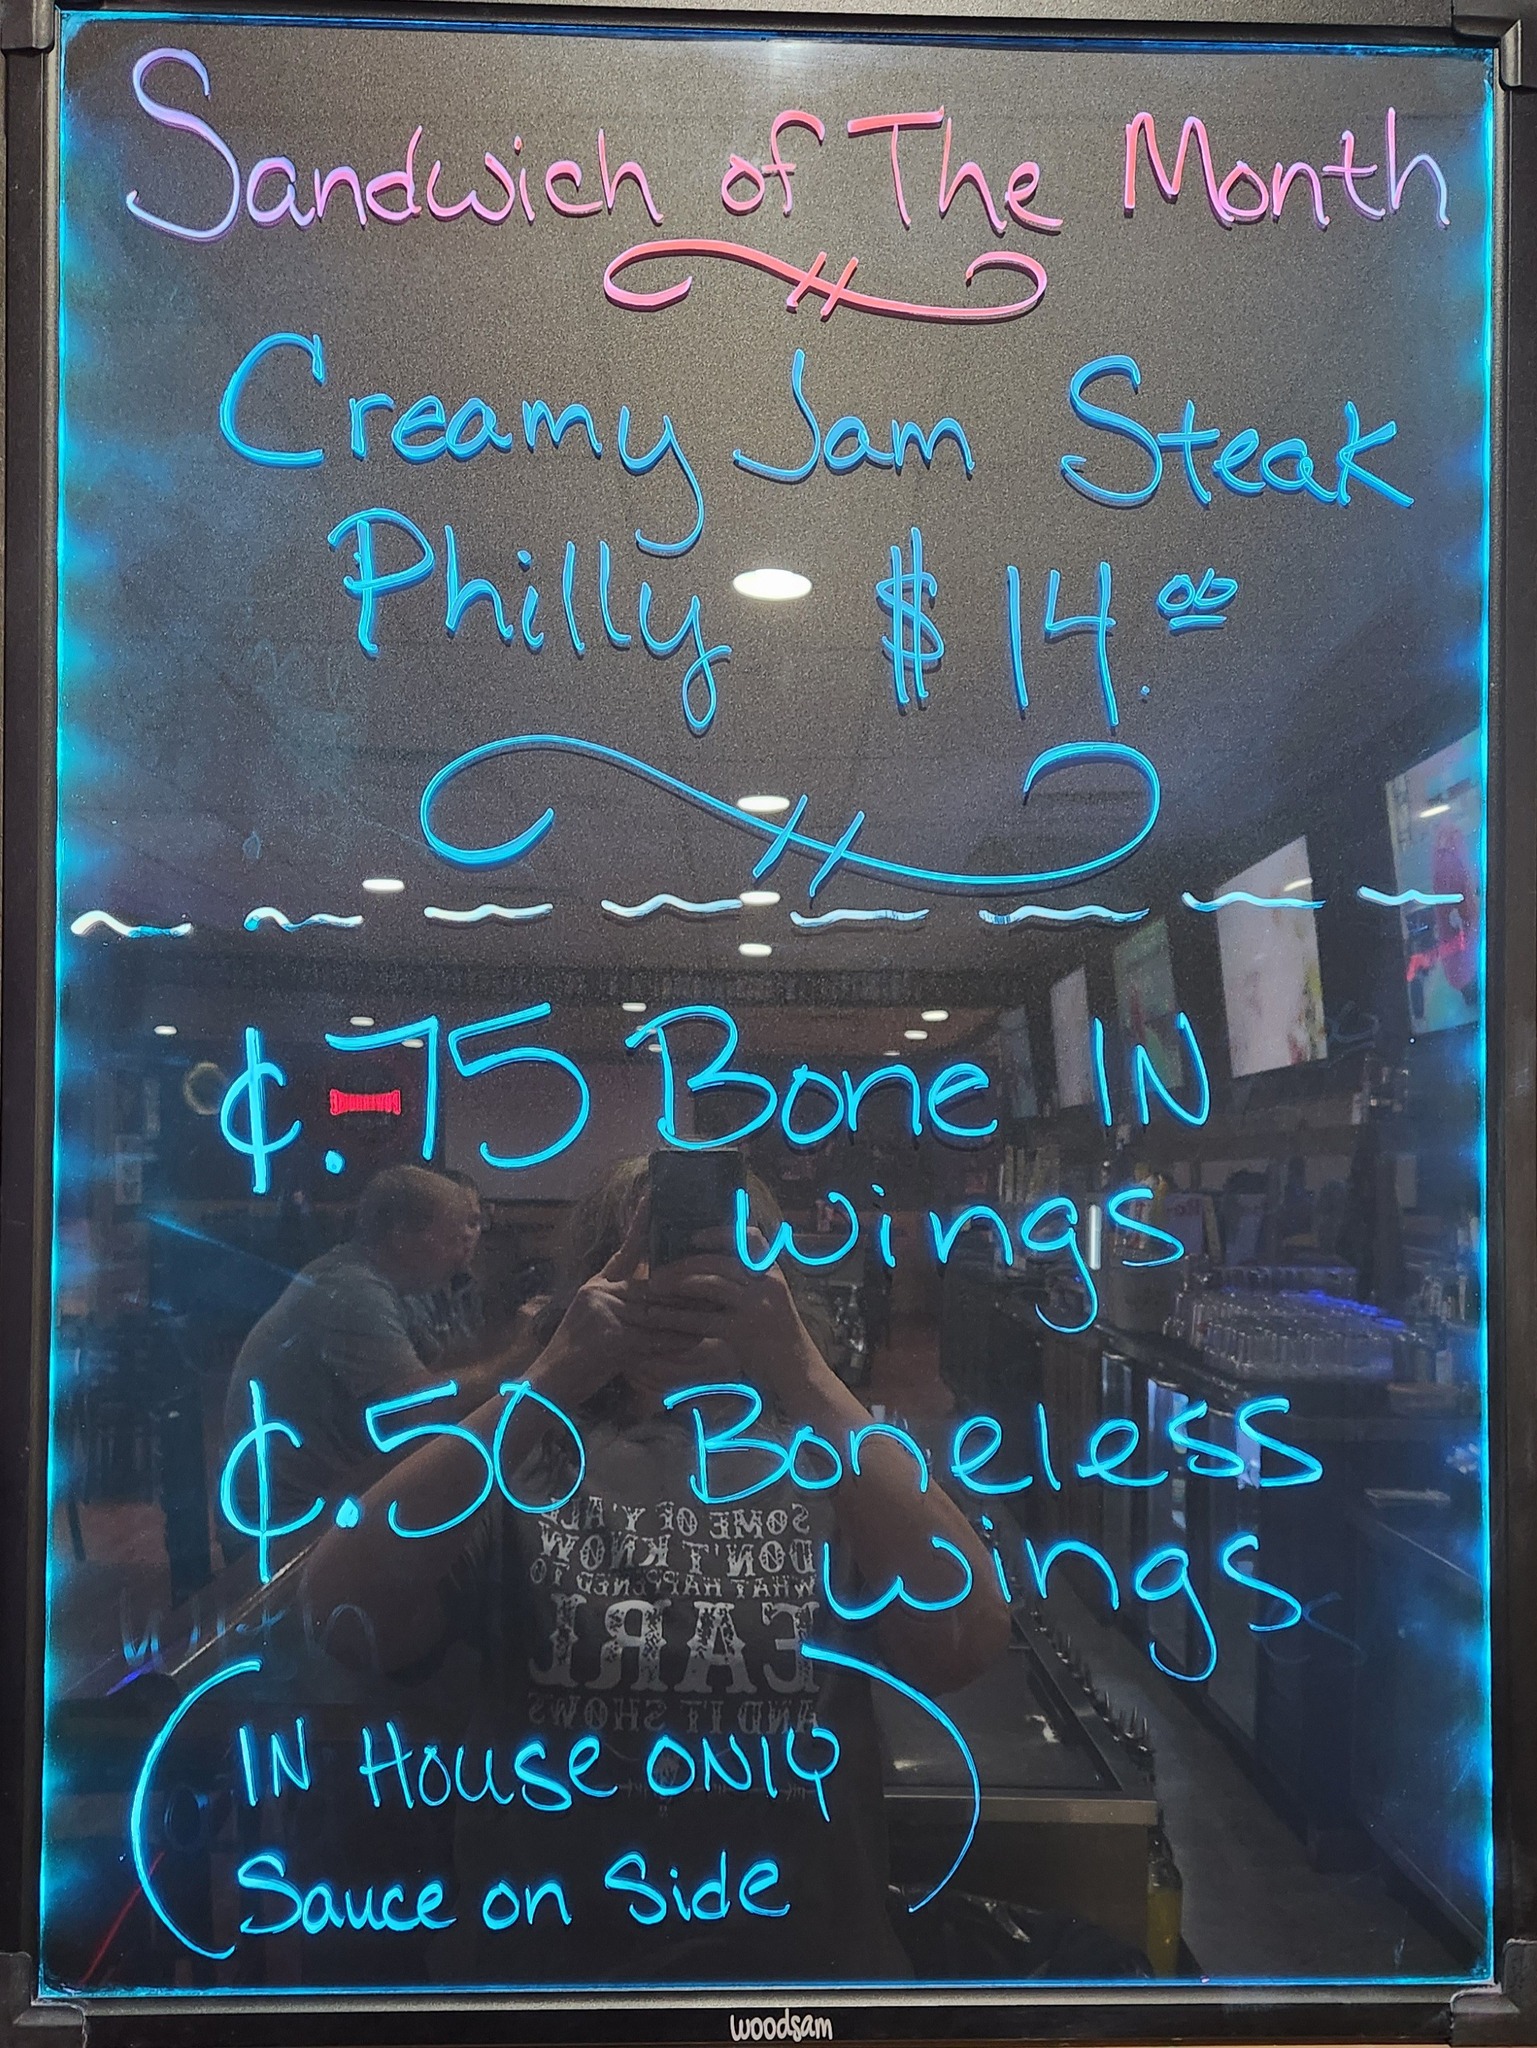 Sandwich of The Month
Creamy Jam Steak
Philly $14.00
¢.75 Bone IN
wings
¢.50 Boneless
wings
SOME OF Y'ALL
DON'T KNOW
WHAT HAPPENED TO
EARL
AND IT SHOWS
(IN House ONly
Sauce on Side)
woodsam